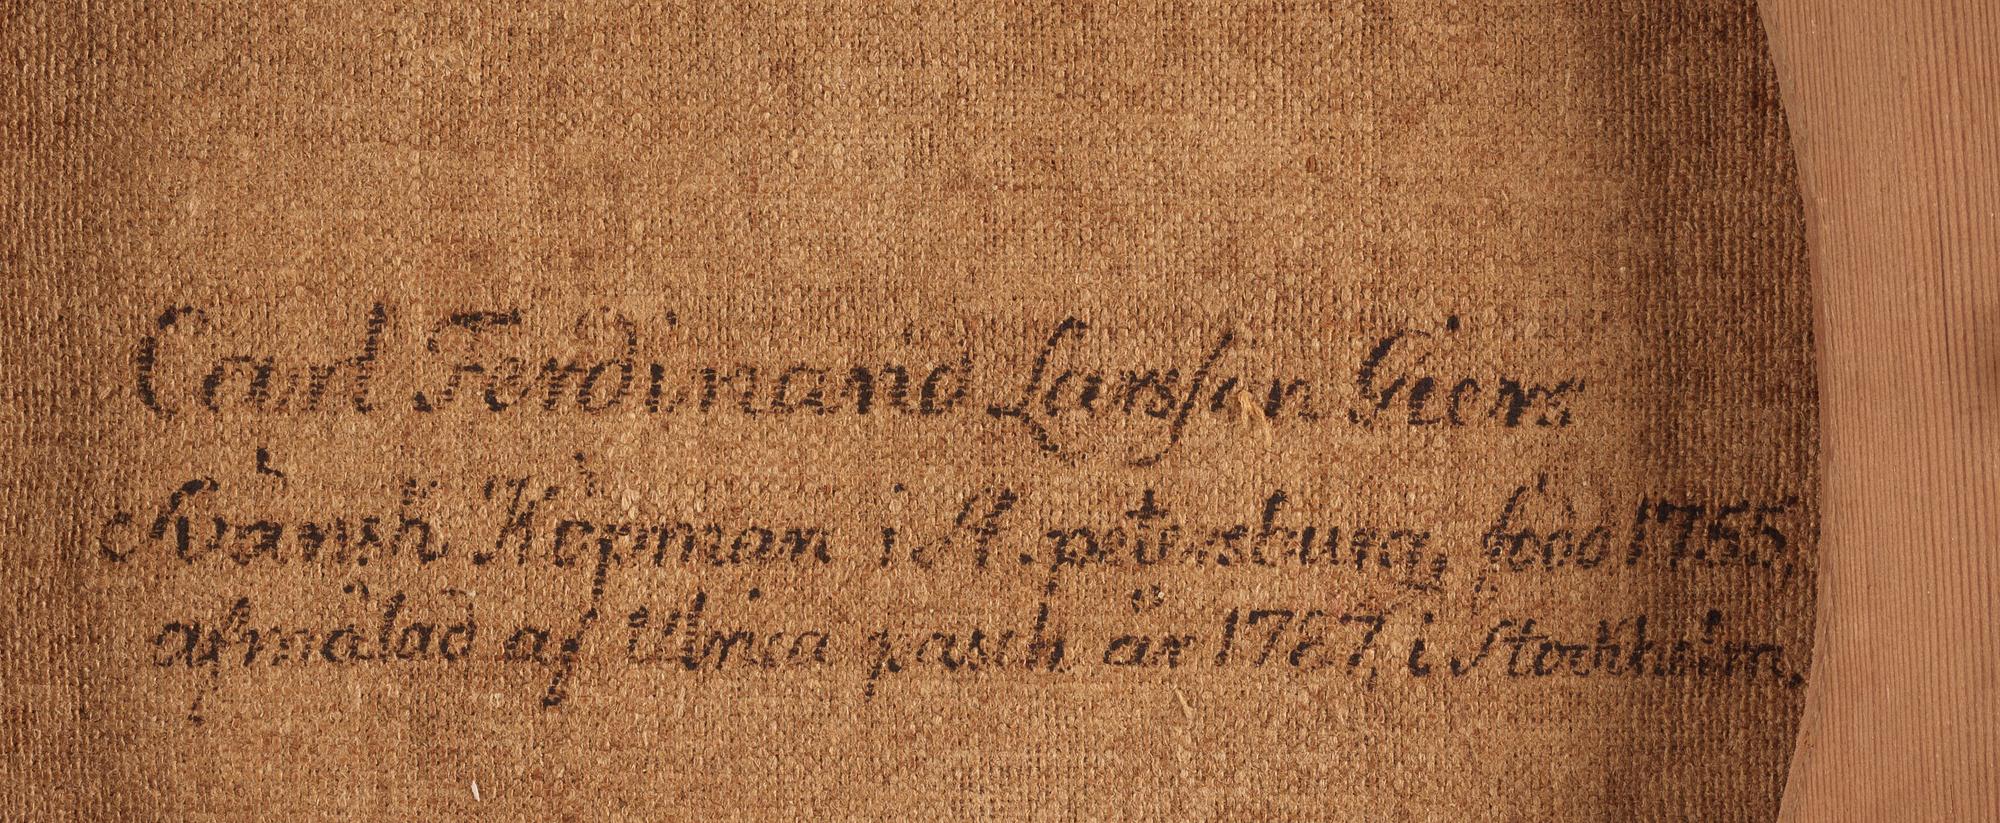 Carl Ferdinand Larsson Geers
Svänsk Köpman i St. petersburg, född 1755,
afmålad af Ulrica pasch år 1787, i Stockholm,